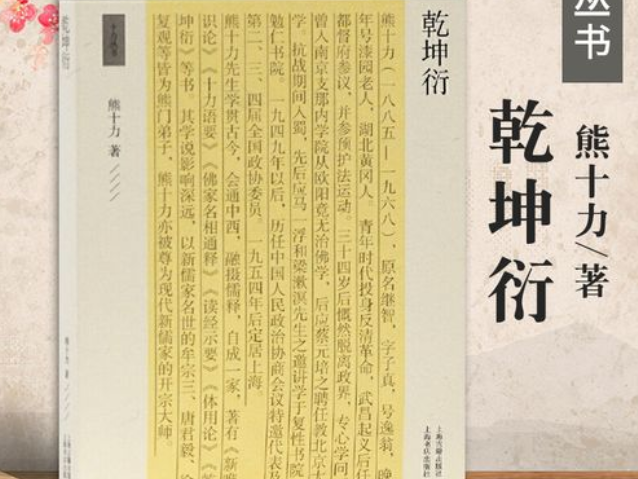 丛书
乾坤衍
熊十力/著
乾坤衍
熊十力（一八八五—一九六八），原名继智，字子真，号逸翁，晚
年号漆园老人，湖北黄冈人。青年时代投身反清革命，武昌起义后任
都督府参议，并参预护法运动。三十四岁后慨然脱离政界，专心学问
曾入南京支那内学院从欧阳竟无治佛学，后应蔡元培之聘任教北京大
学。抗战期间入蜀，先后应马一浮和梁漱溟先生之邀讲学于复性书院
勉仁书院。一九四九年以后，历任中国人民政治协商会议特邀代表及
第二、三、四届全国政协委员。一九五四年后定居上海。
熊十力先生学贯古今，会通中西，融摄儒释，自成一家，著有《新唯
识论》《十力语要》《佛家名相通释》《读经示要》《体用论》《乾
坤衍》等书。其学说影响深远，以新儒家名世的牟宗三、唐君毅、徐
复观等皆为熊门弟子，熊十力亦被尊为现代新儒家的开宗大师。
上海古籍出版社
上海书店出版社
十力丛书
熊十力 著////
乾坤衍
熊十力 著////